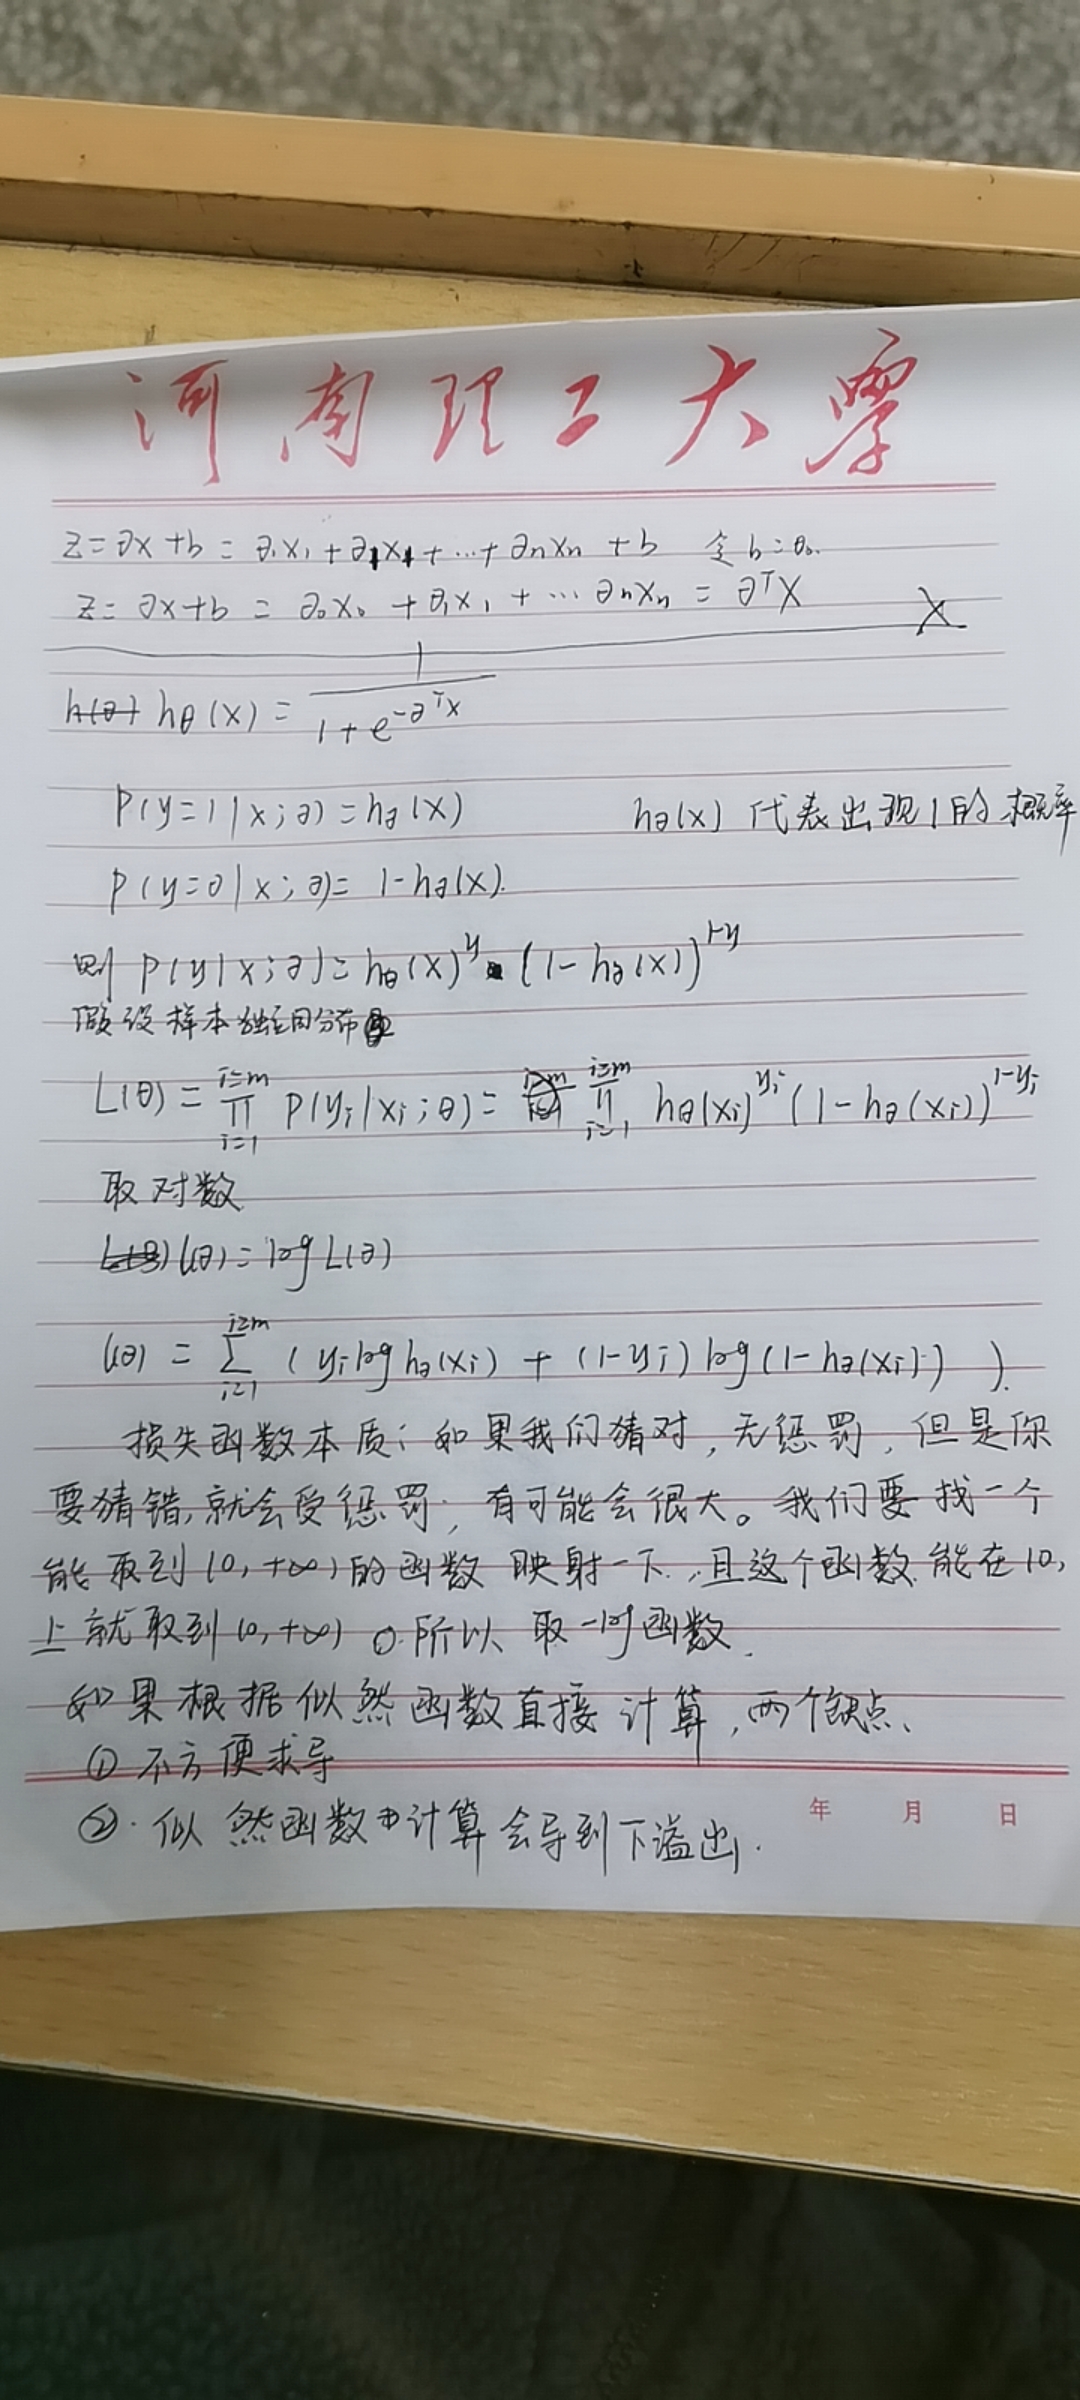 河南理工大学
z=∂x+b = ∂₁x₁+∂₁x₁+…+∂nxn+b 令b=θ₀.
z=∂x+b = ∂₀x₀+∂₁x₁+…∂nxn = ∂ᵀX
hθ(x) = 1/(1+e^(-∂ᵀx))
P(y=1|x;∂)=h∂(x) h∂(x) 代表出现1的概率
P(y=0|x;∂)= 1-h∂(x).
则 P(y|x;∂)= hθ(x)^y·(1-h∂(x))^(1-y)
假设样本独立同分布
L(θ) = ∏_(i=1)^(i=m) P(yi|xi;θ) = ∏_(i=1)^(i=m) hθ(xi)^(yi)(1-h∂(xi))^(1-yi)
取对数
l(∂)=log L(∂)
l(∂) = ∑_(i=1)^(i=m) (yi log h∂(xi) + (1-yi) log(1-h∂(xi))).
损失函数本质:如果我们猜对,无惩罚,但是你
要猜错,就会受惩罚,有可能会很大。我们要找一个
能取到(0,+∞)的函数 映射一下.,且这个函数能在(0,
上就取到(0,+∞) 所以 取-log函数.
如果根据似然函数直接计算,两个缺点、
① 不方便求导
②. 似然函数中计算会导到下溢出.
年 月 日